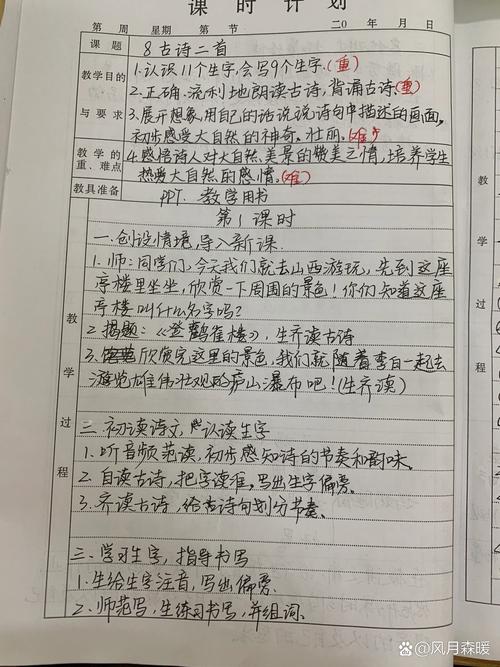 课时计划
第 周 星期 第 节 二0 年 月 日
课题 8古诗二首
教学目的与要求
1.认识11个生字,会写9个生字.(重)
2.正确.流利地朗读古诗,背诵古诗.(重)
3.展开想象,用自己的话说说诗句中描述的画面,
初步感受大自然的神奇、壮丽.(难)
教学的重、难点
4.感悟诗人对大自然美景的赞美之情,培养学生
热爱大自然的感情。(难)
教具准备 PPT、教学用书
教学过程
第1课时
一.创设情境,导入新课.
1.师:同学们,今天我们就去山西游玩,先到这座
亭楼里坐坐,欣赏一下周围的景色!你们知道这座
亭楼叫什么名字吗?
2.揭题:《登鹳雀楼》,生齐读古诗
3.欣赏完这里的景色,我们就随着李白一起去
游览雄伟壮观的庐山瀑布吧!(生齐读)
二.初读诗文,认读生字
1.听音频范读,初步感知诗的节奏和韵味。
2.自读古诗,把字读准,写出生字偏旁。
3.齐读古诗,给古诗句划分节奏。
三、学习生字,指导书写
1.生给生字注音,写出偏旁.
2.师范写,生练习书写,并组词.
@风月森暖